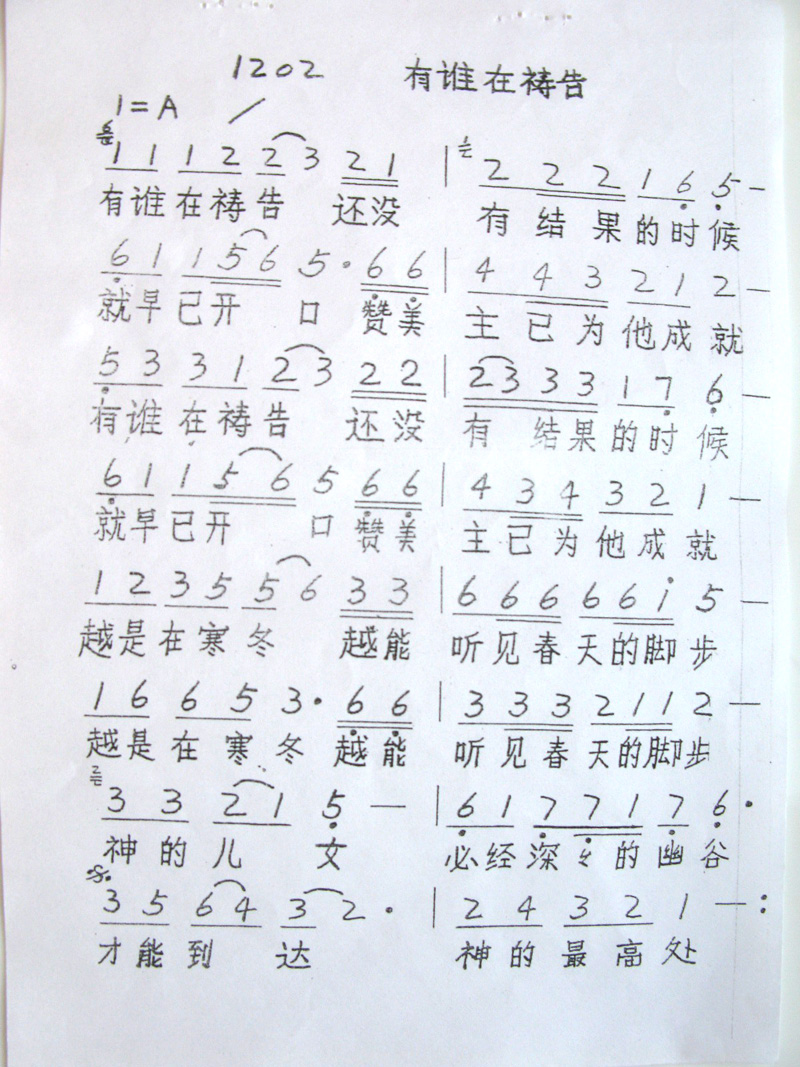 1202 有谁在祷告
1=A
1 1 1 2 2 3 2 1 | 2 2 2 1 6 5 —
有谁在祷告 还没 有结果的时候
6 1 1 5 6 5 · 6 6 | 4 4 3 2 1 2 —
就早已开 口 赞美 主已为他成就
5 3 3 1 2 3 2 2 | 2 3 3 3 1 7 6 —
有谁在祷告 还没 有 结果的时候
6 1 1 5 6 5 6 6 | 4 3 4 3 2 1 —
就早已开 口赞美 主已为他成就
1 2 3 5 5 6 3 3 | 6 6 6 6 6 1 5 —
越是在寒冬 越能 听见春天的脚步
1 6 6 5 3 · 6 6 | 3 3 3 2 1 1 2 —
越是在寒冬越能 听见春天的脚步
3 3 2 1 5 — | 6 1 7 7 1 7 6 ·
神的儿 女 必经深々的幽谷
3 5 6 4 3 2 · | 2 4 3 2 1 — :
才能到 达 神的最高处